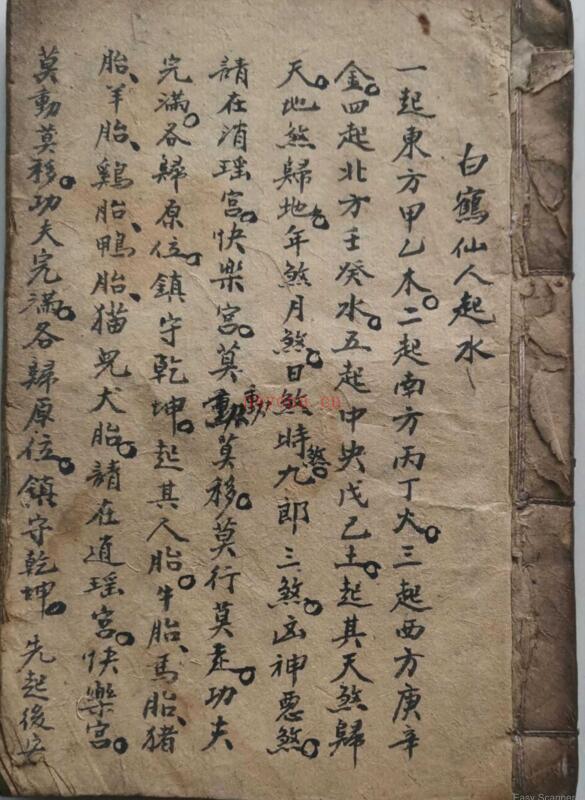 白鶴仙人起水
一起東方甲乙木。二起南方丙丁火。三起西方庚辛
金。四起北方壬癸水。五起中央戊己土。起其天煞歸
天。地煞歸地。年煞月煞。日煞時煞。九郎三煞。凶神惡煞。
請在消瑶宫。快樂宫。莫動莫移。莫行莫走。功夫
完滿。各歸原位。鎮守乾坤。起其人胎。牛胎、馬胎、猪
胎、羊胎、鷄胎、鴨胎、猫兒犬胎。請在逍瑶宫。快樂宫。
莫動莫移。功夫完滿。各歸原位。鎮守乾坤。先起後安
Easy Scanner